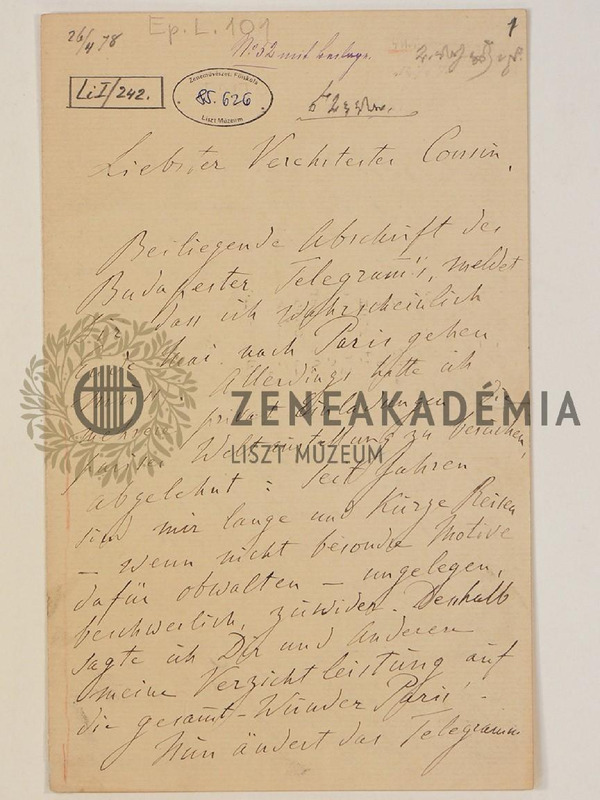 26/4 78
Ep. L. 101
1
No 52 mit Beilage.
Li I/242.
Zeneművészeti Főiskola
85. 626
Liszt Múzeum
Liebster Verehrtester Cousin,
Beiliegende Abschrift des
Budapester Telegram's, meldet
Dir dass ich wahrscheinlich
Mai nach Paris gehen
muss. Allerdings hatte ich
mehrere privat Einladungen die
pariser Weltausstellung zu besuchen,
abgelehnt: Seit Jahren
sind mir lange und kurze Reisen
– wenn nicht besondre Motive
dafür obwalten – ungelegen,
beschwerlich, zuwider. Desshalb
sagte ich Dir und Anderen
meine Verzichtleistung auf
die gesamt-Wunder Paris'.
Nun ändert das Telegramm
ZENEAKADÉMIA
LISZT MÚZEUM